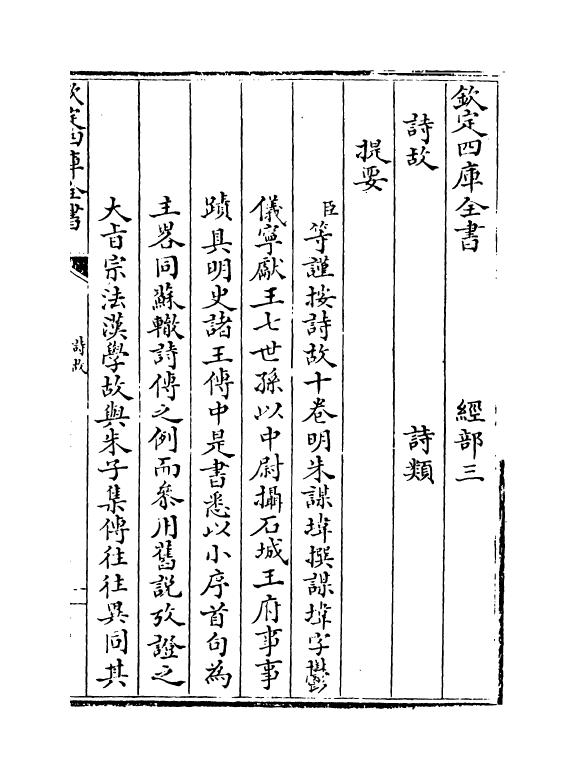 欽定四庫全書　經部三
詩故　詩類
提要
臣等謹按詩故十卷明朱謀㙔撰謀㙔字鬱
儀寧獻王七世孫以中尉攝石城王府事事
蹟具明史諸王傳中是書悉以小序首句為
主畧同蘇轍詩傳之例而叅用舊説攷證之
大㫖宗法漢學故與朱子集傳往往異同其
欽定四庫全書
詩故
一